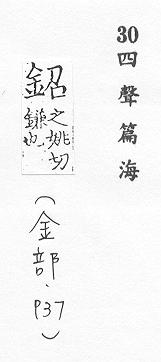 30 四聲篇海
鉊 之姚切
鎌也
(金部、P37)